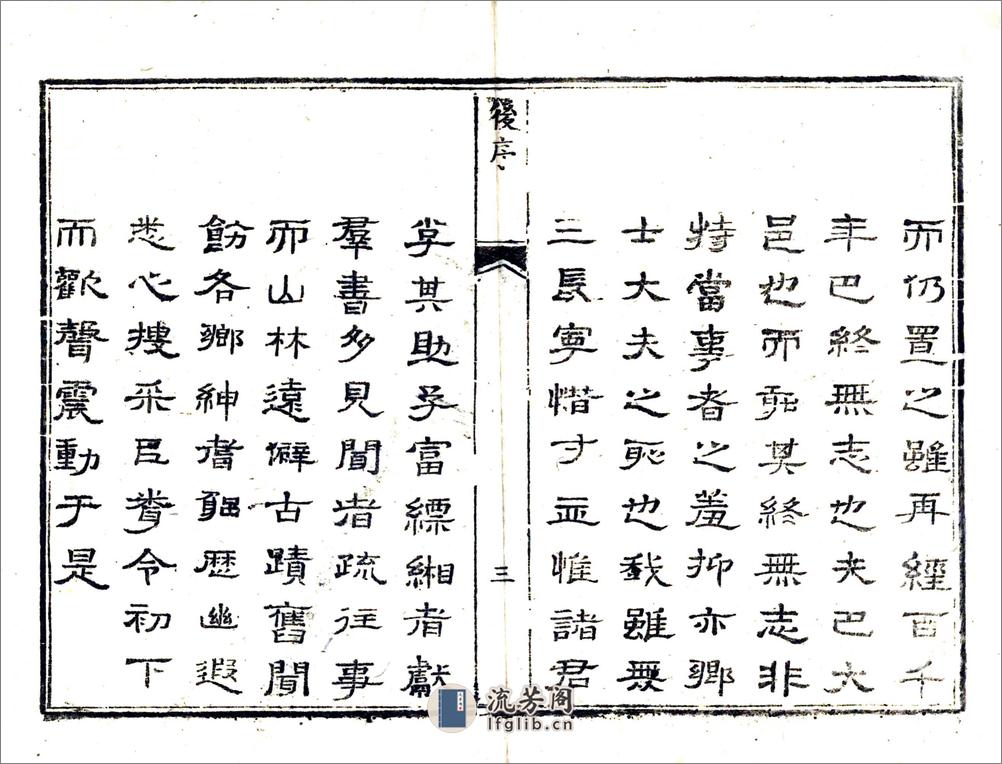 而仍置之雖再經百千
年巴終無志也夫巴大
邑也而聽其終無志非
特當事者之羞抑亦鄉
士大夫之恥也我雖無
三長寧惜寸 惟諸君
後序
三
其助予富縹緗者獻
羣書多見聞者疏往事
而山林遠僻古蹟舊聞
飭各鄉紳耆 歷幽遐
悉心搜采呂 令初下
而歡聲震動于是
流芳阁
lfglib.cn